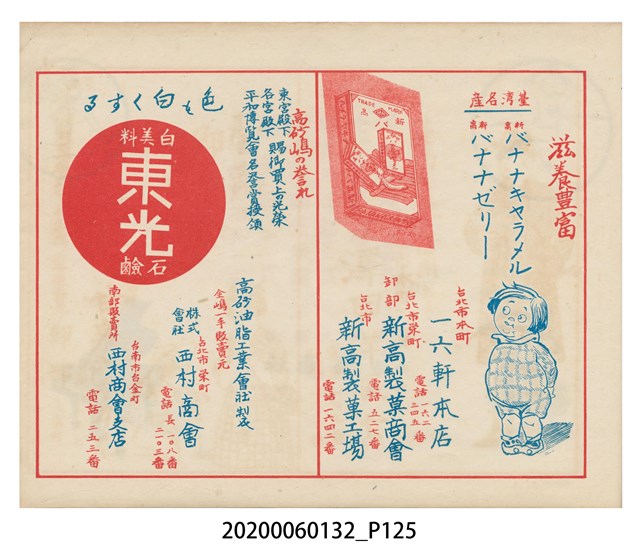 滋養豊富
臺湾名産
新高 バナナキャラメル
新高 バナナゼリー
TRADE MARK
新高
台北市本町
一六軒本店
電話 一六二 二四五番
台北市栄町
卸部 新高製菓商會
電話 五二七番
台北市
新高製菓工場
電話 一六四二番
高砂嶋の誉れ
東宮殿下
各宮殿下 賜御買上の光榮
平和博覧會名誉賞接領
色を白くする
美白料
東光
石鹼
高砂油脂工業會社製
全嶋一手販賣元
台北市栄町
株式會社 西村商會
電話 長一〇八番 二一〇三番
南部販賣所
台南市台金町
西村商會支店
電話 二五三番
20200060132_P125